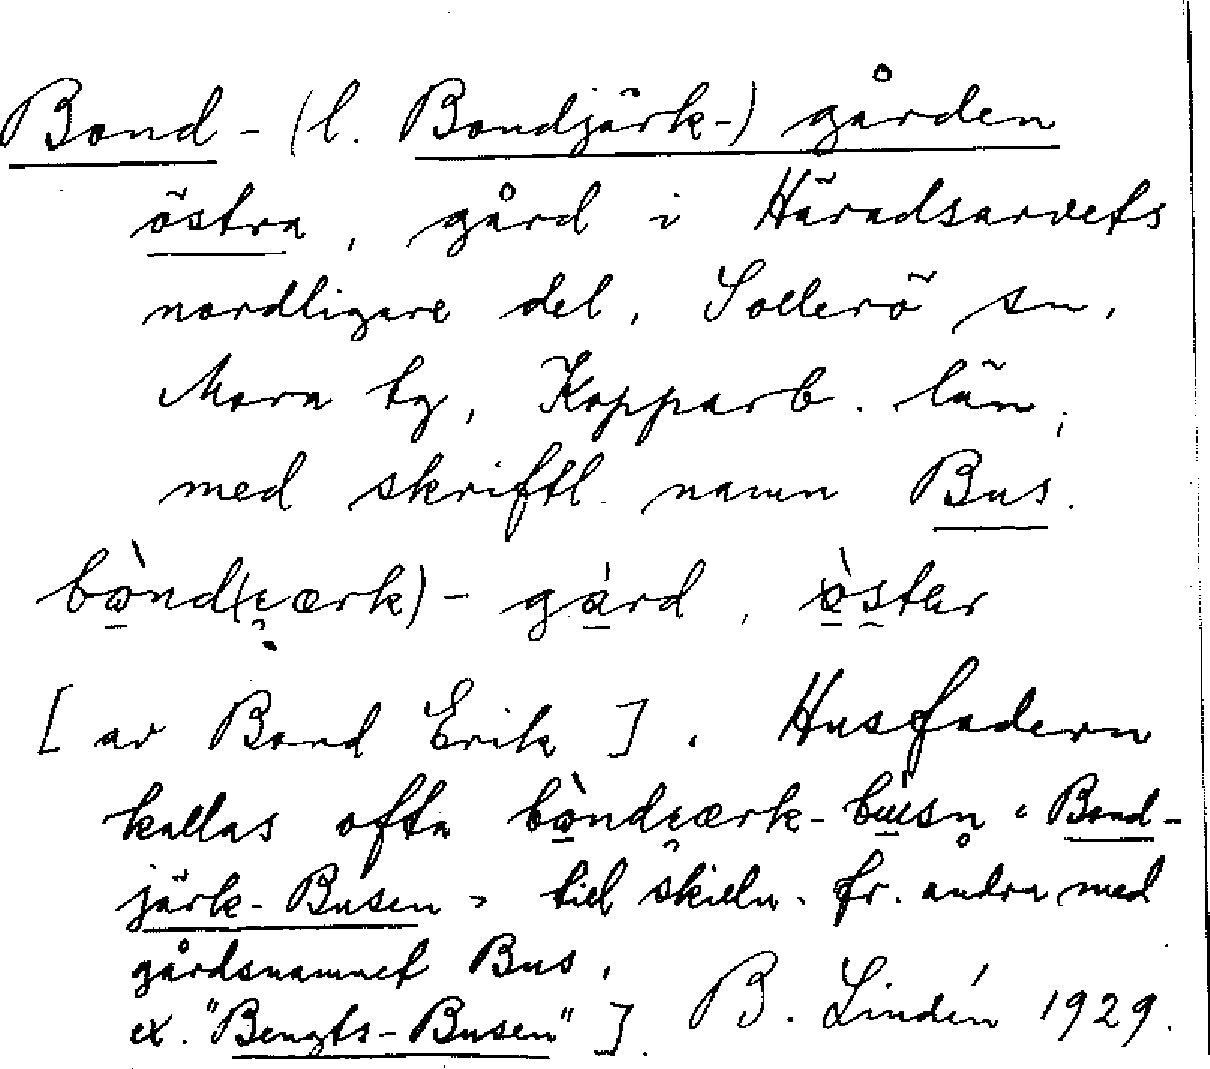 Bond- (l. Bondjärk-) gården
östra, gård i Häradsarvets
nordligare del, Sollerö sn,
Mora tg, Kopparb. län,
med skriftl. namn Bus.
bònd(ɛærk)- gárd, òster
[av Bond Erik]. Husfadern
kallas ofta bòndɛærk-búsn "Bond-
järk-Busen" till skilln. fr. andra med
gårdsnamnet Bus,
ex. "Bengts-Busen"]. B. Lindén 1929.